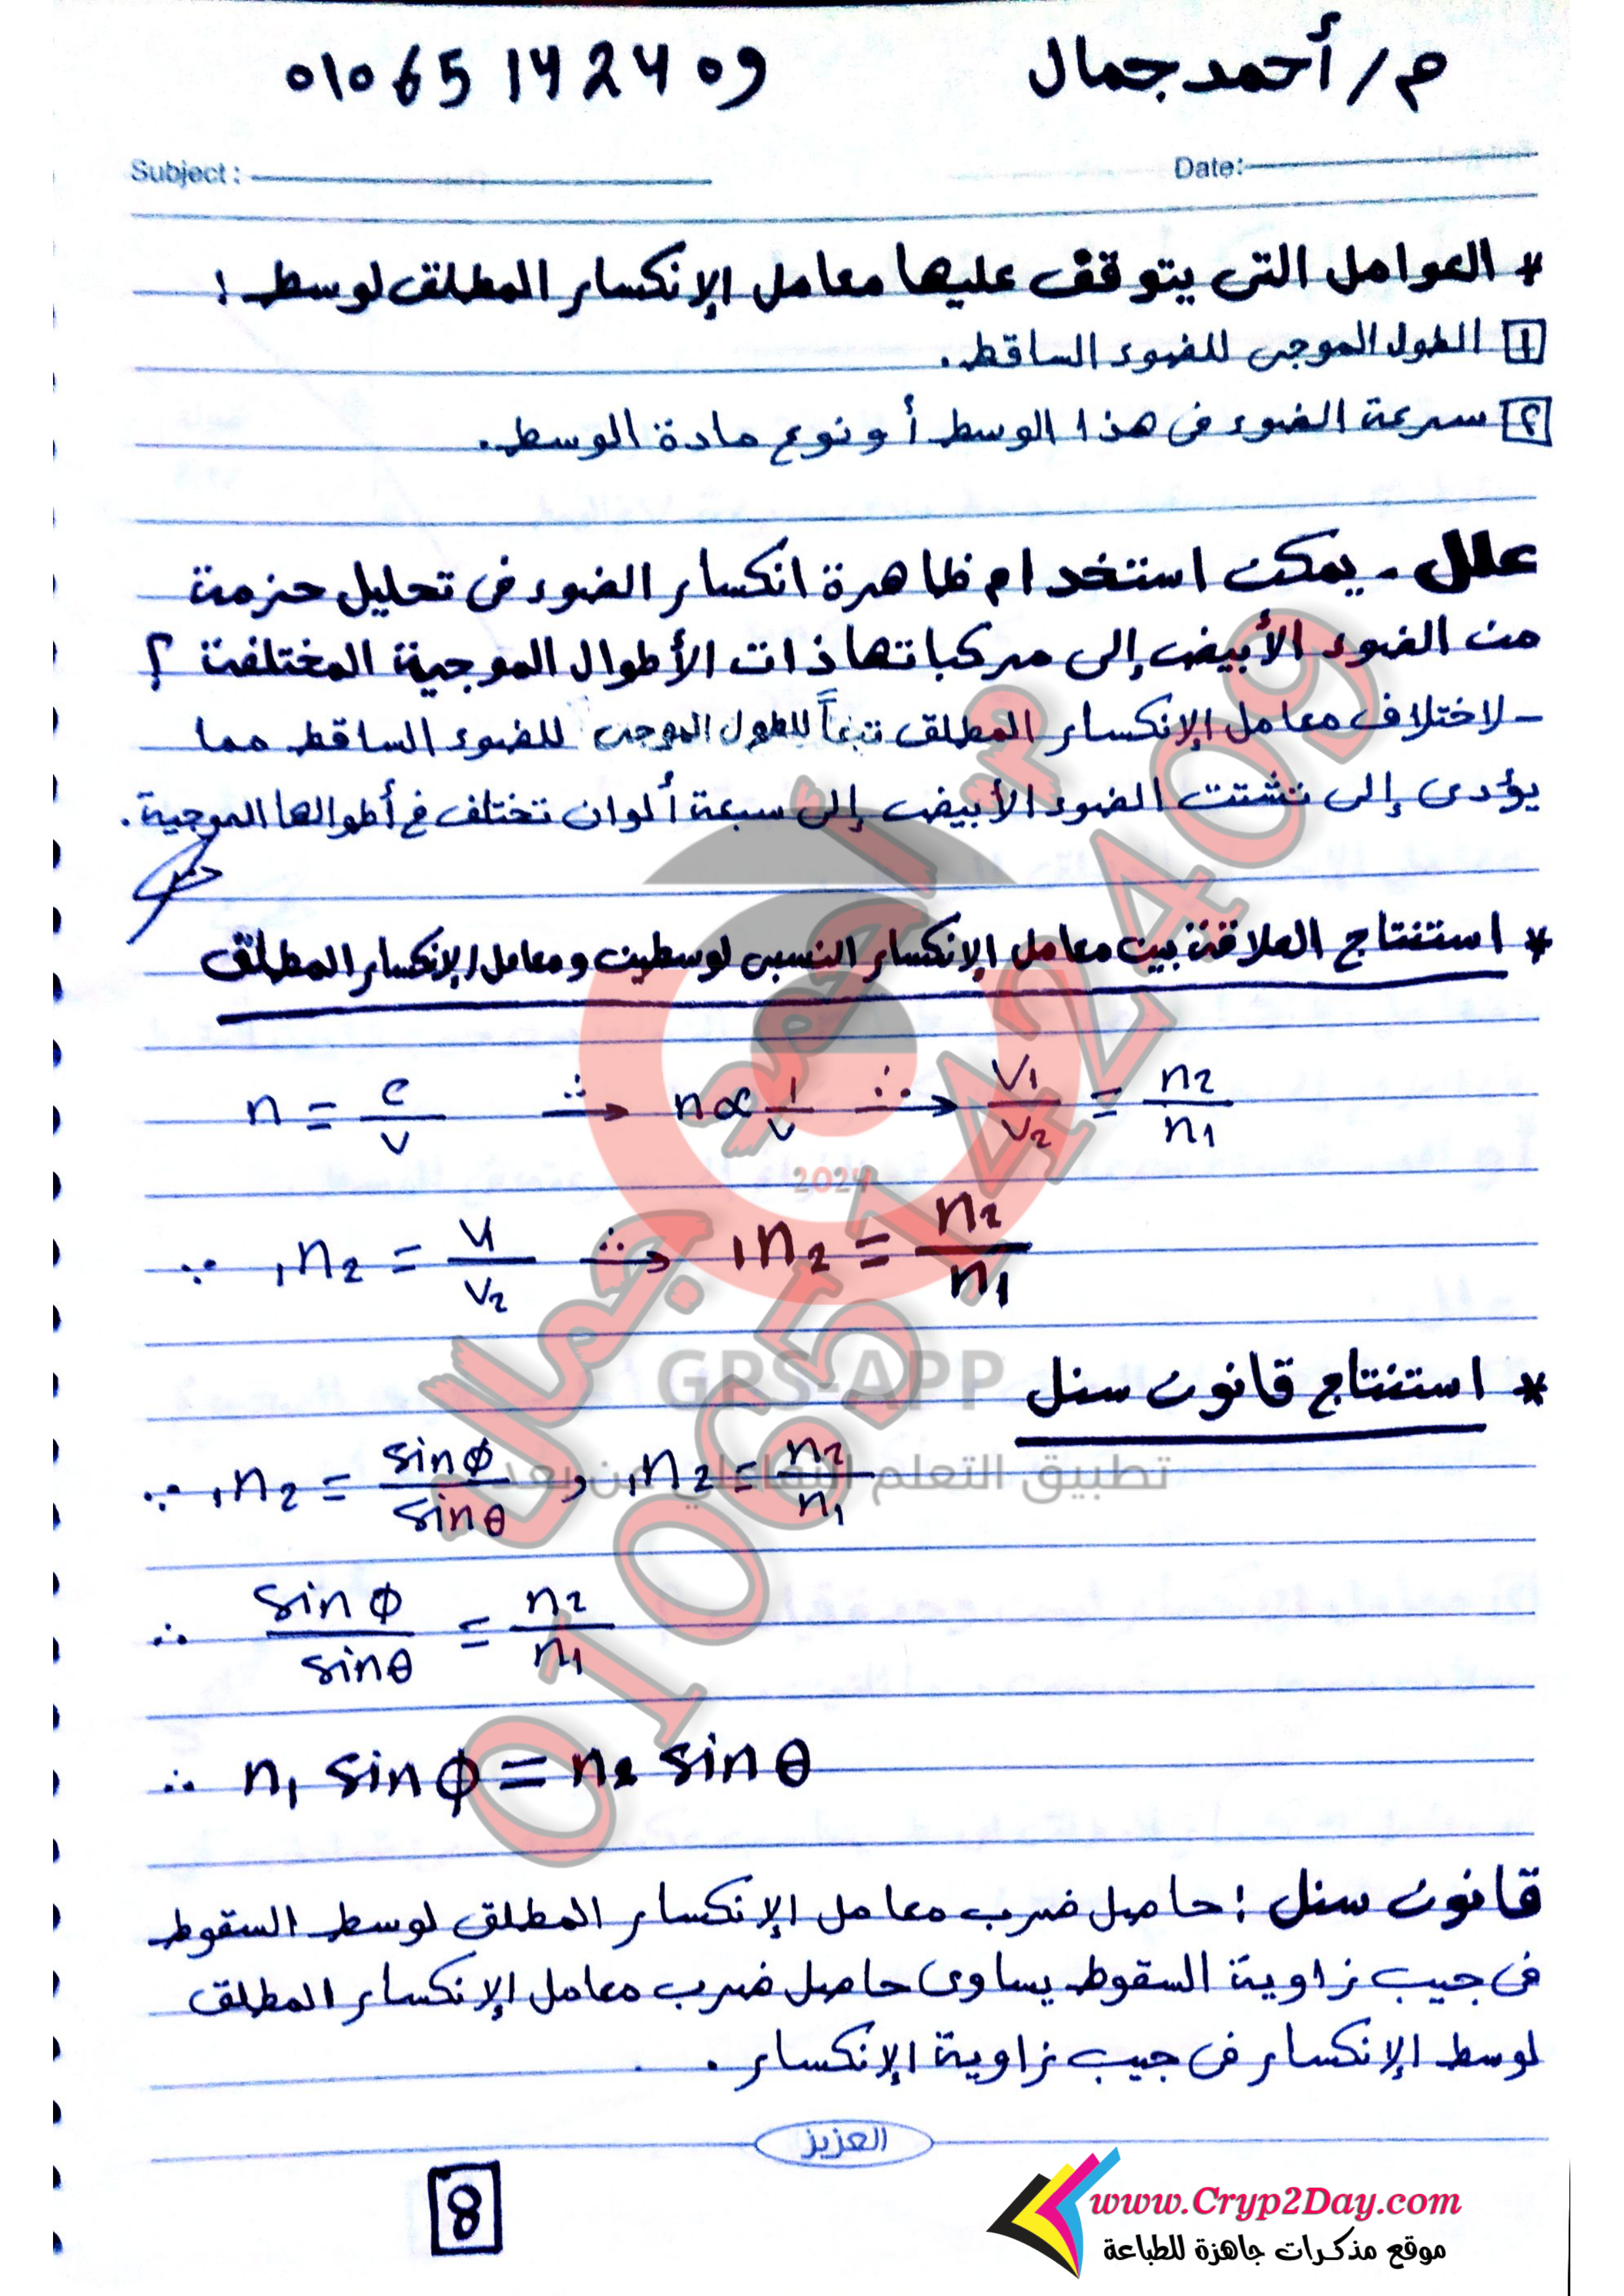 م/ أحمد جمال 01065142409
Subject: Date:
* العوامل التى يتوقف عليها معامل الإنكسار المطلق لوسط :
1 الطول الموجى للضوء الساقط.
٢ سرعة الضوء فى هذا الوسط أو نوع مادة الوسط.
علل - يمكن استخدام ظاهرة انكسار الضوء فى تحليل حزمة
من الضوء الأبيض إلى مركباتها ذات الأطوال الموجية المختلفة ؟
- لاختلاف معامل الإنكسار المطلق تبعاً للطول الموجى للضوء الساقط مما
يؤدى إلى تشتت الضوء الأبيض إلى سبعة ألوان تختلف فى أطوالها الموجية.
* استنتاج العلاقة بين معامل الإنكسار النسبى لوسطين ومعامل الإنكسار المطلق
n = c/v ∴→ n ∝ 1/v ∴→ v₁/v₂ = n₂/n₁
2024
∵ ₁n₂ = v₁/v₂ ∴→ ₁n₂ = n₂/n₁
GPS-APP
* استنتاج قانون سنل
تطبيق التعلم التفاعلي عن بعد
∵ ₁n₂ = sinφ/sinθ , ₁n₂ = n₂/n₁
∴ sinφ/sinθ = n₂/n₁
∴ n₁ sinφ = n₂ sinθ
م أحمد جمال
01065142409
قانون سنل : حاصل ضرب معامل الإنكسار المطلق لوسط السقوط
فى جيب زاوية السقوط يساوى حاصل ضرب معامل الإنكسار المطلق
لوسط الإنكسار فى جيب زاوية الإنكسار.
العزيز
8
www.Cryp2Day.com
موقع مذكرات جاهزة للطباعة